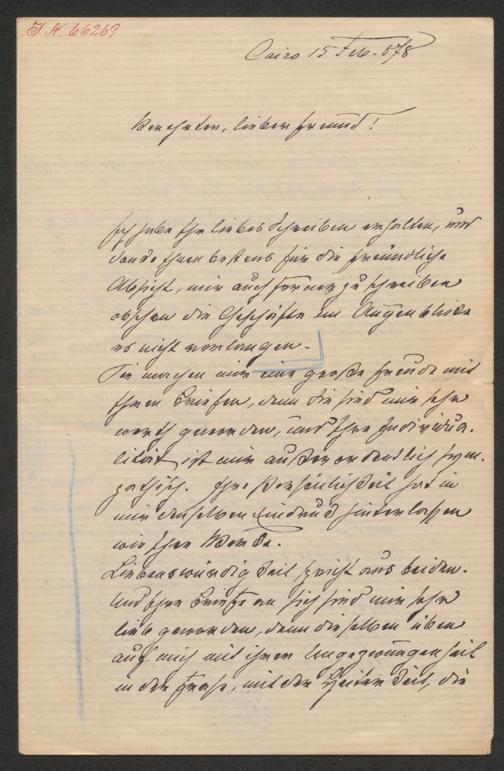 J.N. 66269
Cairo 15 Feb. 878
Verehrter, lieber Freund!
Ich habe Ihr liebes Schreiben erhalten, und
danke Ihnen bestens für die freundliche
Absicht, mir auch ferner zu schreiben
obschon die Geschäfte im Augenblicke
es nicht verlangen.
Sie machen mir eine große Freude mit
Ihren Briefen, denn Sie sind mir sehr
werth geworden, und Ihre Individua-
lität ist mir außerordentlich sym-
pathisch. Ihre Persönlichkeit hat in
mir denselben Eindruck hinterlassen
wie Ihre Werke.
Liebenswürdigkeit spricht aus beiden.
Und Ihre Briefe an sich sind mir sehr
lieb geworden, denn dieselben üben
auf mich mit ihrer Ungezwungenheit
in der Frase, mit der Heiterkeit, die